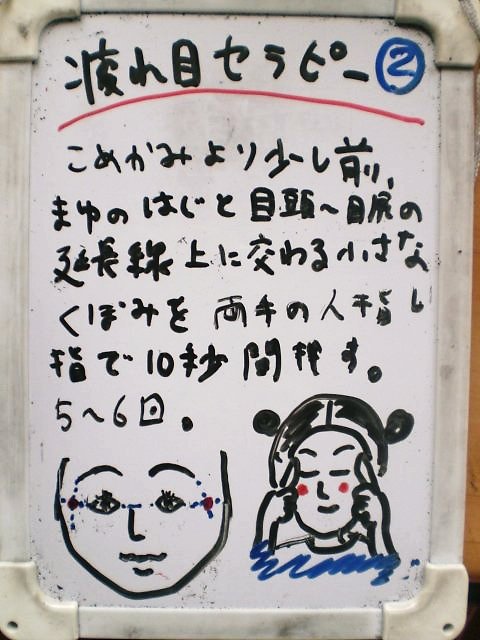 疲れ目セラピー②
こめかみより少し前、
まゆのはじと目頭〜目尻の
延長線上に交わる小さな
くぼみを両手の人指し
指で10秒間押す。
5〜6回。